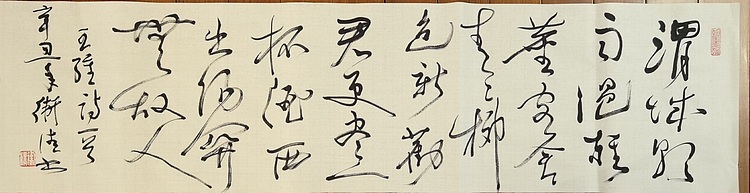 渭城朝
雨浥輕
塵客舍
青々柳
色新勸
君更盡一
杯酒西
出陽關
無故人
王維詩一首
辛丑年衛書